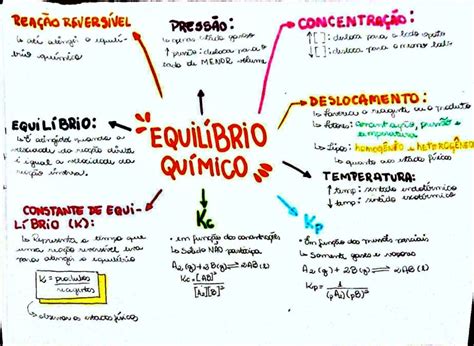 REAÇÃO REVERSÍVEL
↳ até atingir o equilí-
brio químico
PRESSÃO:
↳ apenas estado gasoso
↑ pressão: desloca para o
lado de MENOR volume
CONCENTRAÇÃO:
↑[ ]: desloca para o lado oposto
↓[ ]: desloca para o mesmo lado
DESLOCAMENTO:
↳ Favorece o reagente ou o produto
↳ Fatores: concentração, pressão e
temperatura
↳ Tipos: homogêneo e heterogêneo
↳ quanto aos estados físicos
EQUILÍBRIO:
↳ É atingido quando a
velocidade da reação direta
é igual a velocidade da
reação inversa.
EQUILÍBRIO
QUÍMICO
TEMPERATURA:
↑ temp: sentido endotérmico
↓ temp: sentido exotérmico
CONSTANTE DE EQUI-
LÍBRIO (K):
↳ Representa o tempo que
uma reação reversível leva
para atingir o equilíbrio
K = produtos
reagentes
↳ observar os estados físicos
Kc
• em função das concentrações
↳ Sólido NÃO participa
A₂(g) + 2B(g) ⇌ 2AB(l)
Kc = [AB]²
[A₂][B]²
Kp
• Em função das pressões parciais
↳ Somente gases e vapores
A₂(g) + 2B(g) ⇌ 2AB(l)
Kp = 1
(pA₂)(pB)²